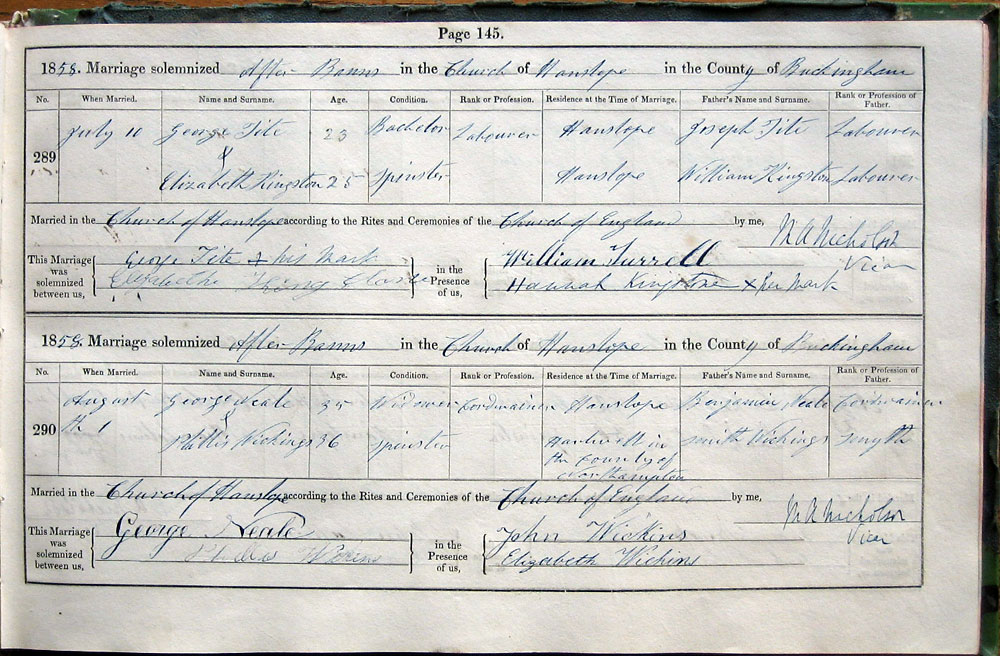 Page 145.
1858. Marriage solemnized After Banns in the Church of Hanslope in the County of Buckingham
No. When Married. Name and Surname. Age. Condition. Rank or Profession. Residence at the Time of Marriage. Father's Name and Surname. Rank or Profession of Father.
289 July 10 George Tite 23 Bachelor Labourer Hanslope Joseph Tite Labourer
&
Elizabeth Kingston 25 Spinster Hanslope William Kingston Labourer
Married in the Church of Hanslope according to the Rites and Ceremonies of the Church of England by me, M A Nicholson
Vicar
This Marriage was solemnized between us, George Tite x his Mark in the Presence of us, William Turrell
Elizabethe Hannah Kingstone x her Mark
1858. Marriage solemnized After Banns in the Church of Hanslope in the County of Buckingham
No. When Married. Name and Surname. Age. Condition. Rank or Profession. Residence at the Time of Marriage. Father's Name and Surname. Rank or Profession of Father.
290 August George Neale 35 Widower Cordwainer Hanslope Benjamin Neale Cordwainer
th 1 &
Phillis Wickings 36 Spinster Hartwell in Smith Wickings Smyth
the County of
Northampton
Married in the Church of Hanslope according to the Rites and Ceremonies of the Church of England by me, M A Nicholson
Vicar
This Marriage was solemnized between us, George Neale in the Presence of us, John Wickins
Elizabeth Wickins